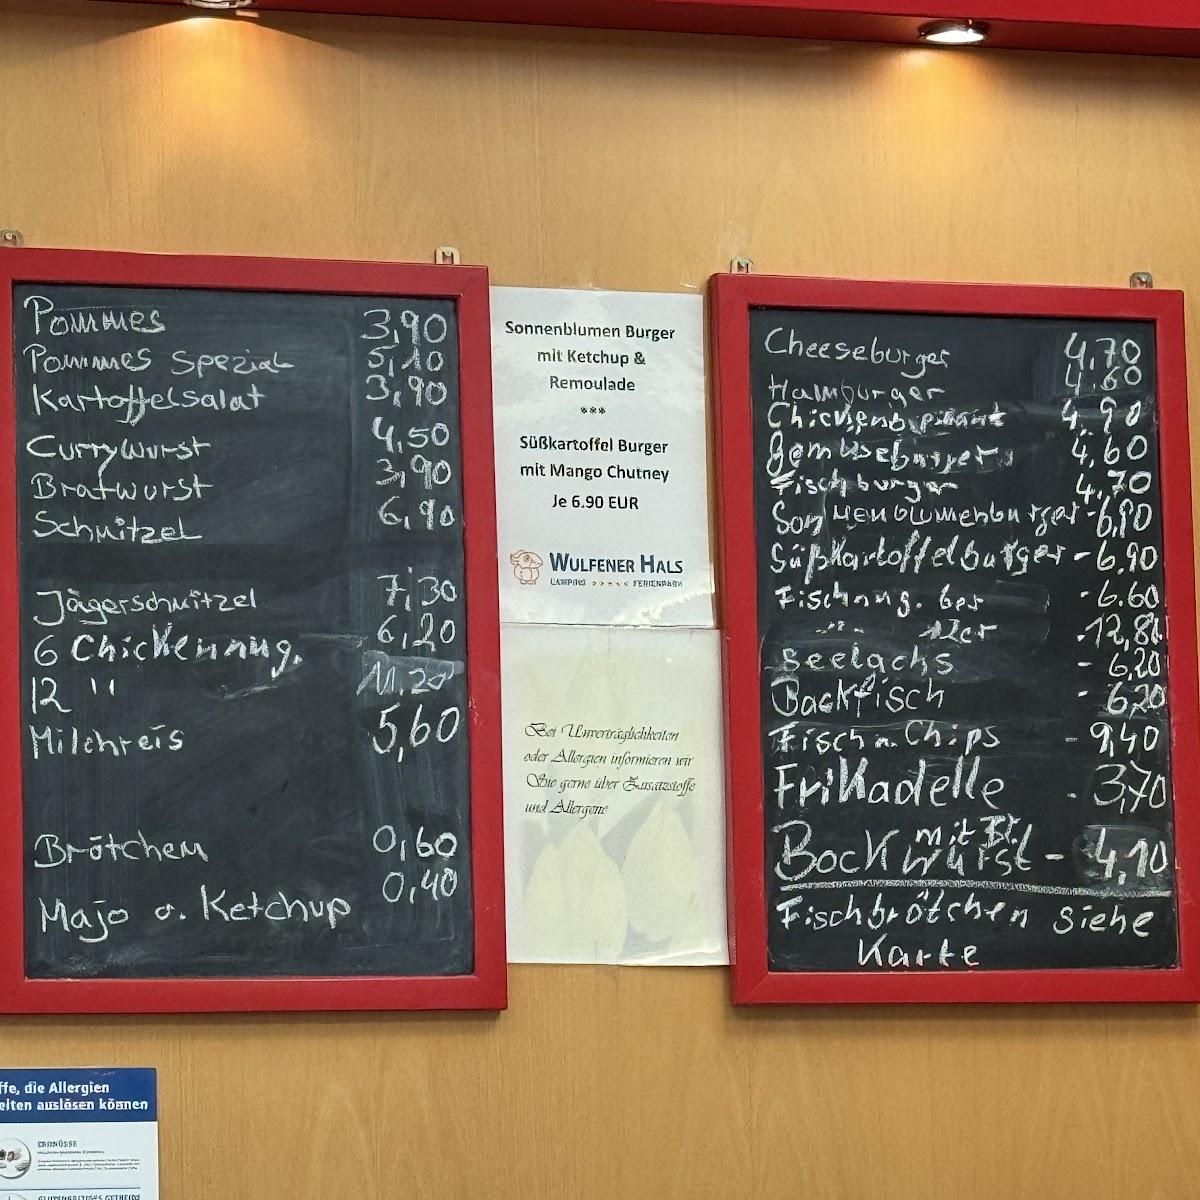 Pommes 3,90
Pommes Spezial 5,10
Kartoffelsalat 3,90
Currywurst 4,50
Bratwurst 3,90
Schnitzel 6,90
Jägerschnitzel 7,30
6 Chickennug. 6,20
12 " 11,20
Milchreis 5,60
Brötchen 0,60
Majo o. Ketchup 0,40
Sonnenblumen Burger
mit Ketchup &
Remoulade
***
Süßkartoffel Burger
mit Mango Chutney
Je 6.90 EUR
WULFENER HALS
CAMPING >>>>< FERIENPARK
Bei Unverträglichkeiten
oder Allergien informieren wir
Sie gerne über Zusatzstoffe
und Allergene
Cheeseburger 4,70
Hamburger 4,60
4,90
Gemüseburger 4,60
Fischburger 4,70
Sonnenblumenburger - 6,90
Süßkartoffelburger - 6,90
Fischnug. 6er - 6.60
" 12er - 12,80
Seelachs - 6,20
Backfisch - 6,20
Fisch n. Chips - 9,40
Frikadelle - 3,70
mit Br.
Bockwurst - 4,10
Fischbrötchen siehe
Karte
ffe, die Allergien
eiten auslösen können
ERDNÜSSE